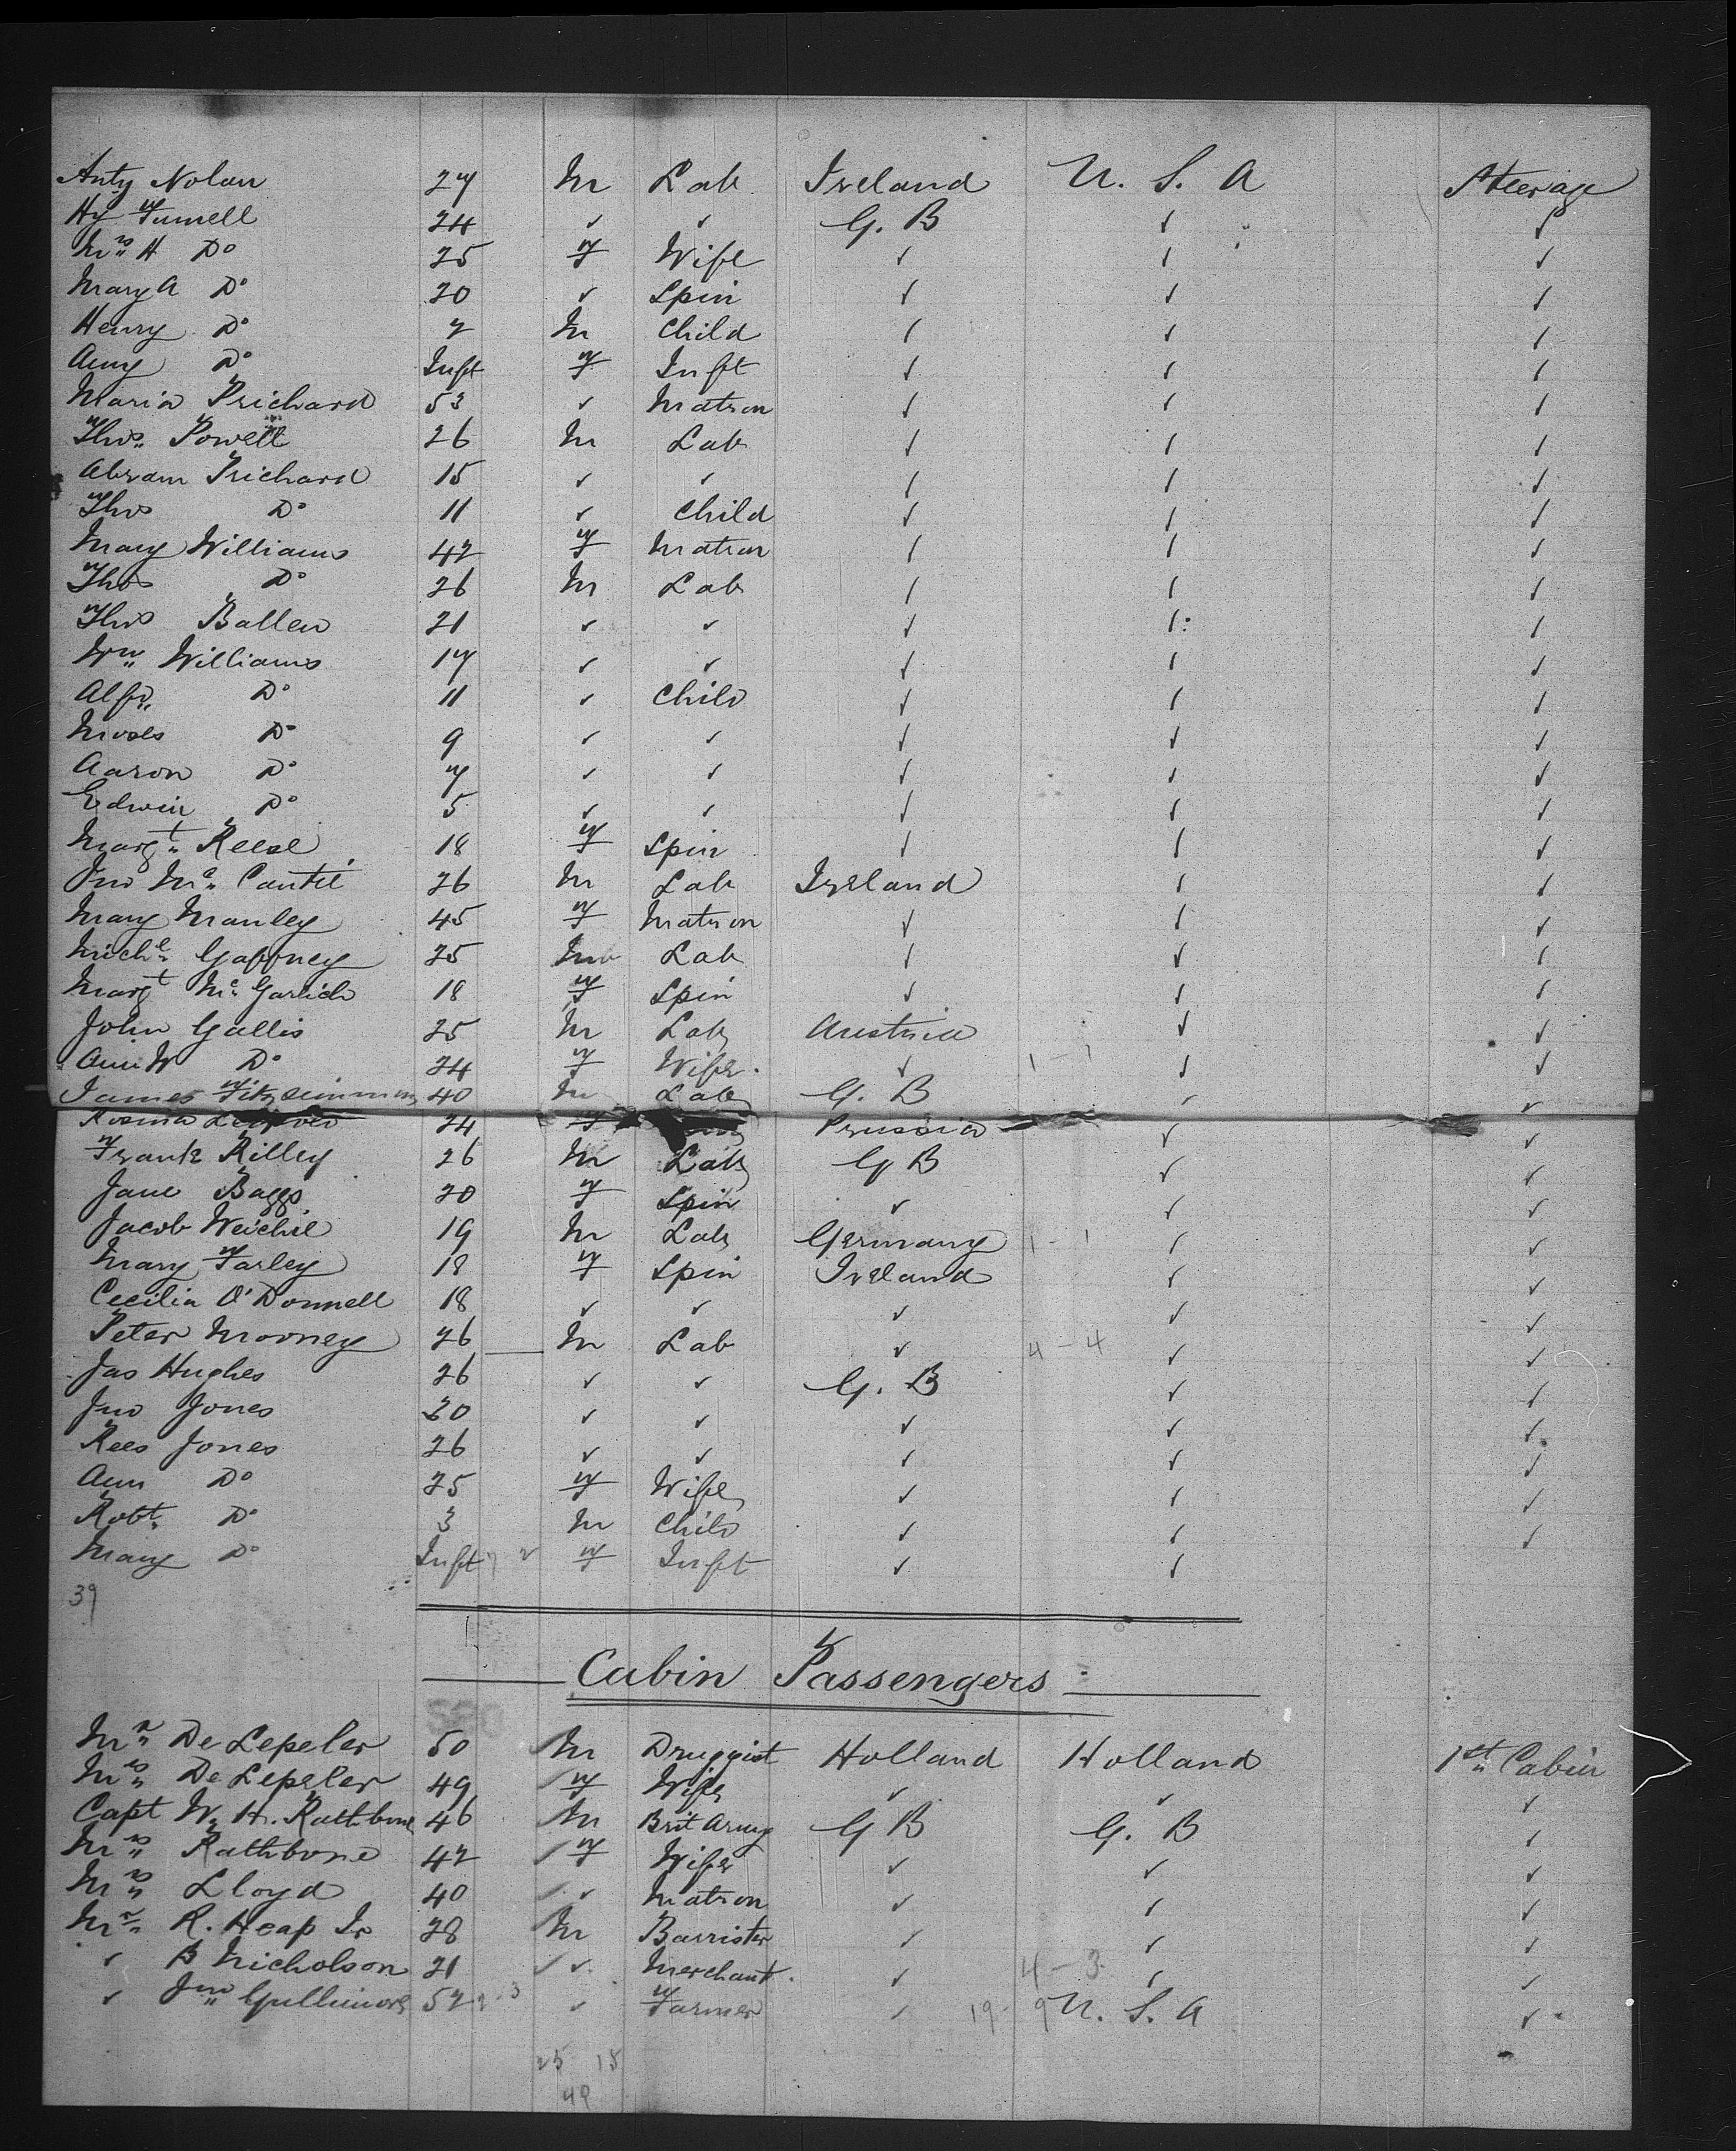 Anty Nolan 27 M Lab Ireland U. S. A Steerage
Hy Funnell 24 ✓ ✓ G. B ✓ ✓
Mrs H Do 25 F Wife ✓ ✓ ✓
Mary A Do 20 ✓ Spin ✓ ✓ ✓
Henry Do 2 M Child ✓ ✓ ✓
Amy Do Inft F Inft ✓ ✓ ✓
Maria Prichard 53 ✓ Matron ✓ ✓ ✓
Thos Powell 26 M Lab ✓ ✓ ✓
Abram Prichard 15 ✓ ✓ ✓ ✓ ✓
Thos Do 11 ✓ Child ✓ ✓ ✓
Mary Williams 42 F Matron ✓ ✓ ✓
Thos Do 26 M Lab ✓ ✓ ✓
Thos Ballen 21 ✓ ✓ ✓ ✓ ✓
Wm Williams 17 ✓ ✓ ✓ ✓ ✓
Alfd Do 11 ✓ Child ✓ ✓ ✓
Moses Do 9 ✓ ✓ ✓ ✓ ✓
Aaron Do 7 ✓ ✓ ✓ ✓ ✓
Edwin Do 5 ✓ ✓ ✓ ✓ ✓
Margt Reese 18 F Spin ✓ ✓ ✓
Jno Mc Cantie 26 M Lab Ireland ✓ ✓
Mary Manley 45 F Matron ✓ ✓ ✓
Michl Gaffney 25 M Lab ✓ ✓ ✓
Margt Mc 18 F Spin ✓ ✓ ✓
John Gallis 25 M Lab Austria ✓ ✓
Ann W Do 24 F Wife ✓ 1 - 1 ✓ ✓
James Fitzsimmons 40 M Lab G. B ✓ ✓
Rosina 24 F Prussia ✓ ✓
Frank Rilley 26 M Lab G B ✓ ✓
Jane Baggs 20 F Spin ✓ ✓ ✓
Jacob Weichil 19 M Lab Germany 1 - 1 ✓ ✓
Mary Farley 18 F Spin Ireland ✓ ✓
Cecilia O'Donnell 18 ✓ ✓ ✓ ✓ ✓
Peter Mooney 26 M Lab ✓ 4 - 4 ✓ ✓
Jas Hughes 26 ✓ ✓ G. B ✓ ✓
Jno Jones 20 ✓ ✓ ✓ ✓ ✓
Rees Jones 26 ✓ ✓ ✓ ✓ ✓
Ann Do 25 F Wife ✓ ✓ ✓
Robt Do 3 M Child ✓ ✓ ✓
Mary Do Inft F Inft ✓ ✓
39
Cabin Passengers
Mr De Lepeler 50 M Druggist Holland Holland 1st Cabin
Mrs De Lepeler 49 F Wife ✓ ✓ ✓
Capt W. H. Rathbone 46 M Brit Army G B G. B ✓
Mrs Rathbone 42 F Wife ✓ ✓ ✓
Mrs Lloyd 40 ✓ Matron ✓ ✓ ✓
Mr R. Heap Jr 28 M Barrister ✓ ✓ ✓
✓ B Nicholson 21 ✓ Merchant ✓ 4 - 3 ✓ ✓
✓ Jno Gullimore 52 2 - 3 ✓ Farmer ✓ 19 - 9 U. S. A ✓
25 15
49